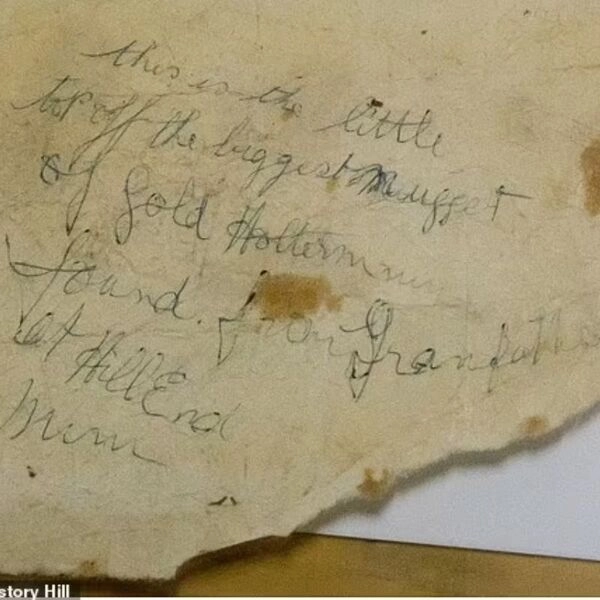 this is the little
top off the biggest nugget
of Gold Holtermann
found. from Granfathe
at Hill End
Mum
story Hill